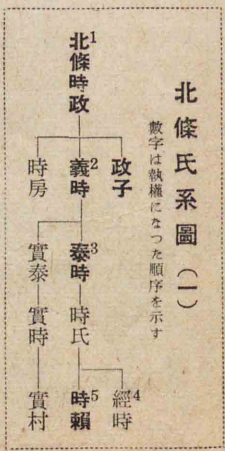 北條氏系圖（一）
數字は執權になつた順序を示す
北條時政1
政子
義時2
時房
泰時3
實泰
時氏
實時
經時4
時賴5
實村